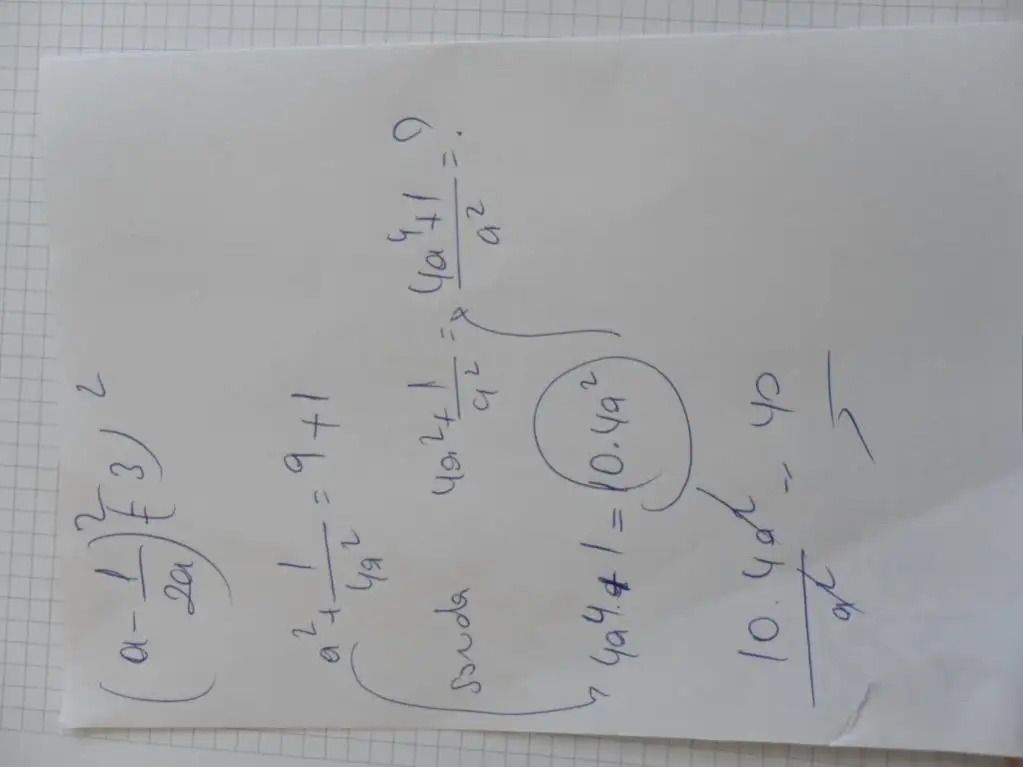 (a - 1/2a)² = (3)²
a² + 1/4a² = 9 + 1
soruda 4a² + 1/a² = 4a⁴+1/a² = ?
4a⁴ + 1 = 10.4a²
10.4a²/a² = 40